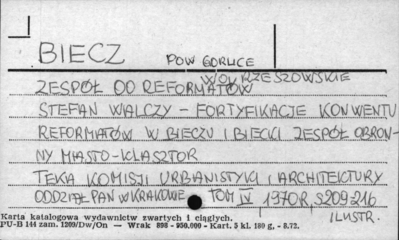 BIECZ POW GORLICE
WOJ RZESZOWSKIE
ZESPÓŁ OO REFORMATÓW
STEFAN WALCZY - FORTYFIKACJE KONWENTU
REFORMATÓW W BIECZU I BIECKI ZESPÓŁ OBRON-
NY MIASTO-KLASZTOR
TEKA KOMISJI URBANISTYKI I ARCHITEKTURY
ODDZIAŁ PAN W KRAKOWIE TOM IV 1970R, S209-216
ILUSTR.
Karta katalogowa wydawnictw zwartych i ciągłych.
PU-B 144 zam. 1209/Dw/On — Wrak 898 - 950.000 - Kart. 5 kl. 180 g. - 8.72.